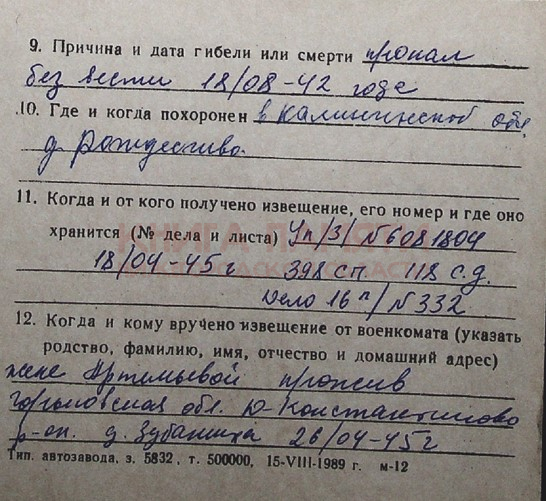 9. Причина и дата гибели или смерти пропал
без вести 18/08-42 годе
10. Где и когда похоронен в Калининской обл,
д. Рождество.
11. Когда и от кого получено извещение, его номер и где оно
хранится (№ дела и листа) Уп/3/ №6081804
18/04-45 г 398 сп. 118 с.д.
Дело 16 п/№332
12. Когда и кому вручено извещение от военкомата (указать
родство, фамилию, имя, отчество и домашний адрес)
жене Артемьевой прожив
горьковская обл. Ю-Константиново
р-он. д. Зубаниха 26/04-45 г
Тип. автозавода, з. 5832, т. 500000, 15-VIII-1989 г. м-12